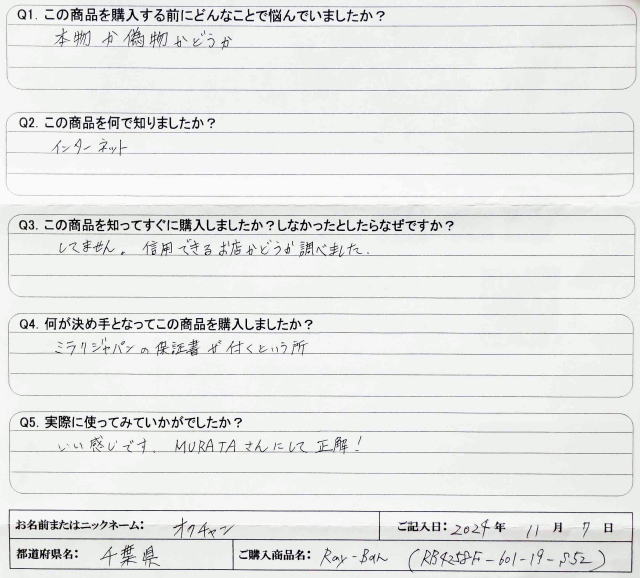 Q1. この商品を購入する前にどんなことで悩んでいましたか？
本物か偽物かどうか
Q2. この商品を何で知りましたか？
インターネット
Q3. この商品を知ってすぐに購入しましたか？しなかったとしたらなぜですか？
してません。信用できるお店かどうか調べました.
Q4. 何が決め手となってこの商品を購入しましたか？
ミラリジャパンの保証書が付くという所
Q5. 実際に使ってみていかがでしたか？
いい感じです. MURATAさんにして正解！
お名前またはニックネーム： オクチャン ご記入日：2024年 11月 7日
都道府県名： 千葉県 ご購入商品名： Ray-Ban (RB4258F-601-19-S52)